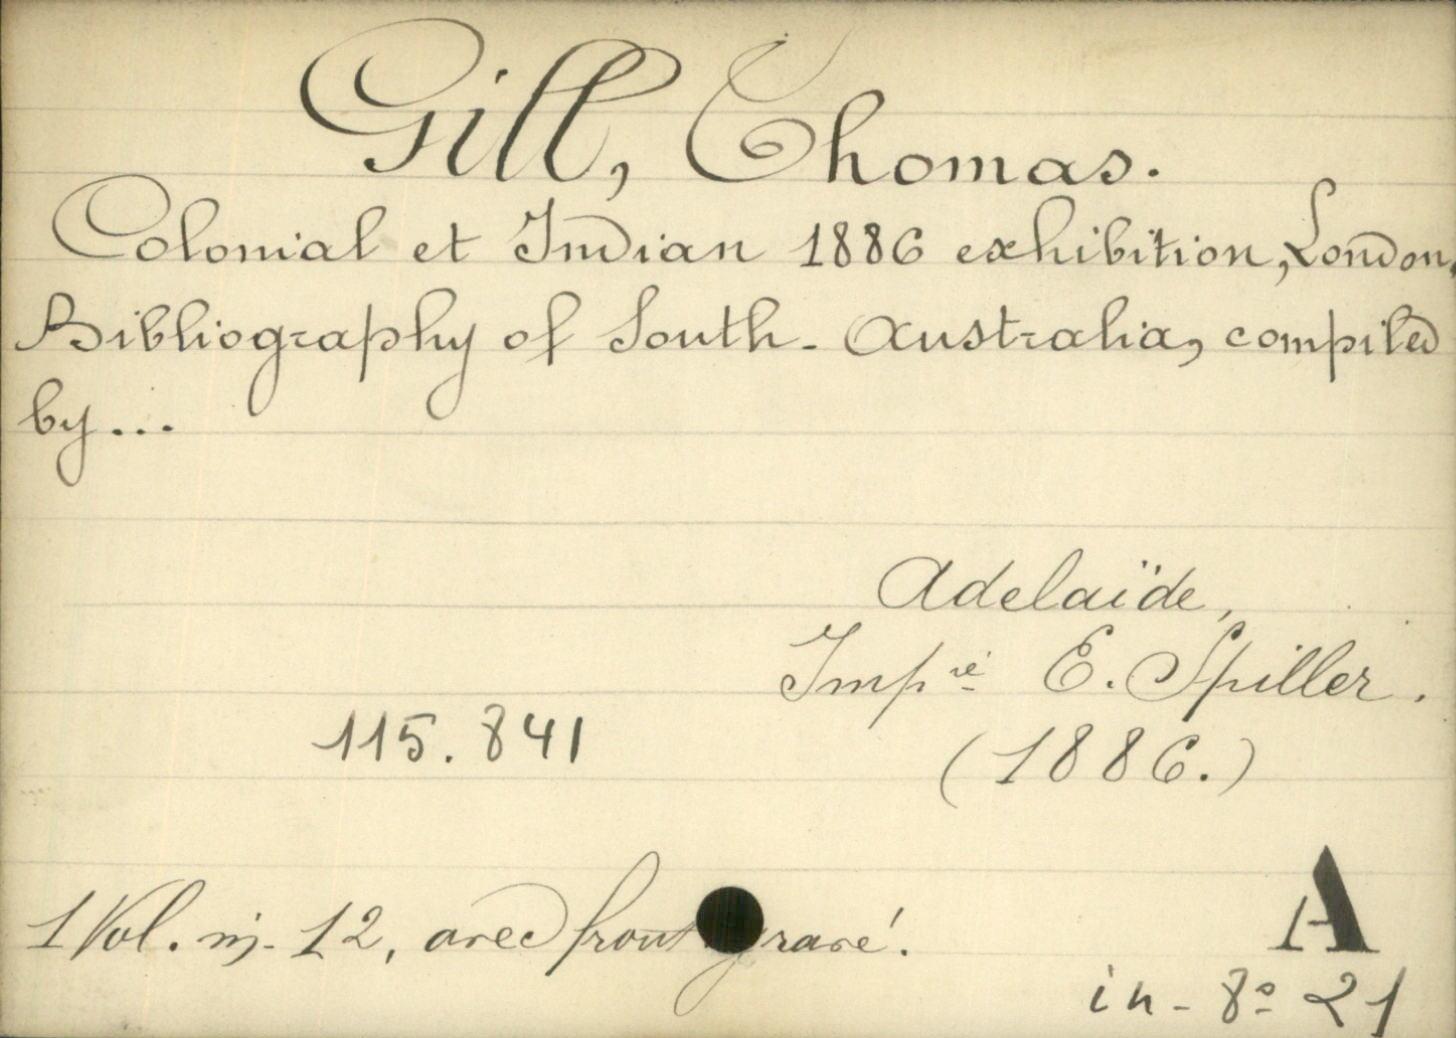 Gill, Thomas.
Colonial et Indian 1886 exhibition, London.
Bibliography of South-Australia, compiled
by...
Adelaïde,
Impie E. Spiller.
115.841
(1886.)
1 Vol. in-12, avec front gravé.
A
in-8° 21